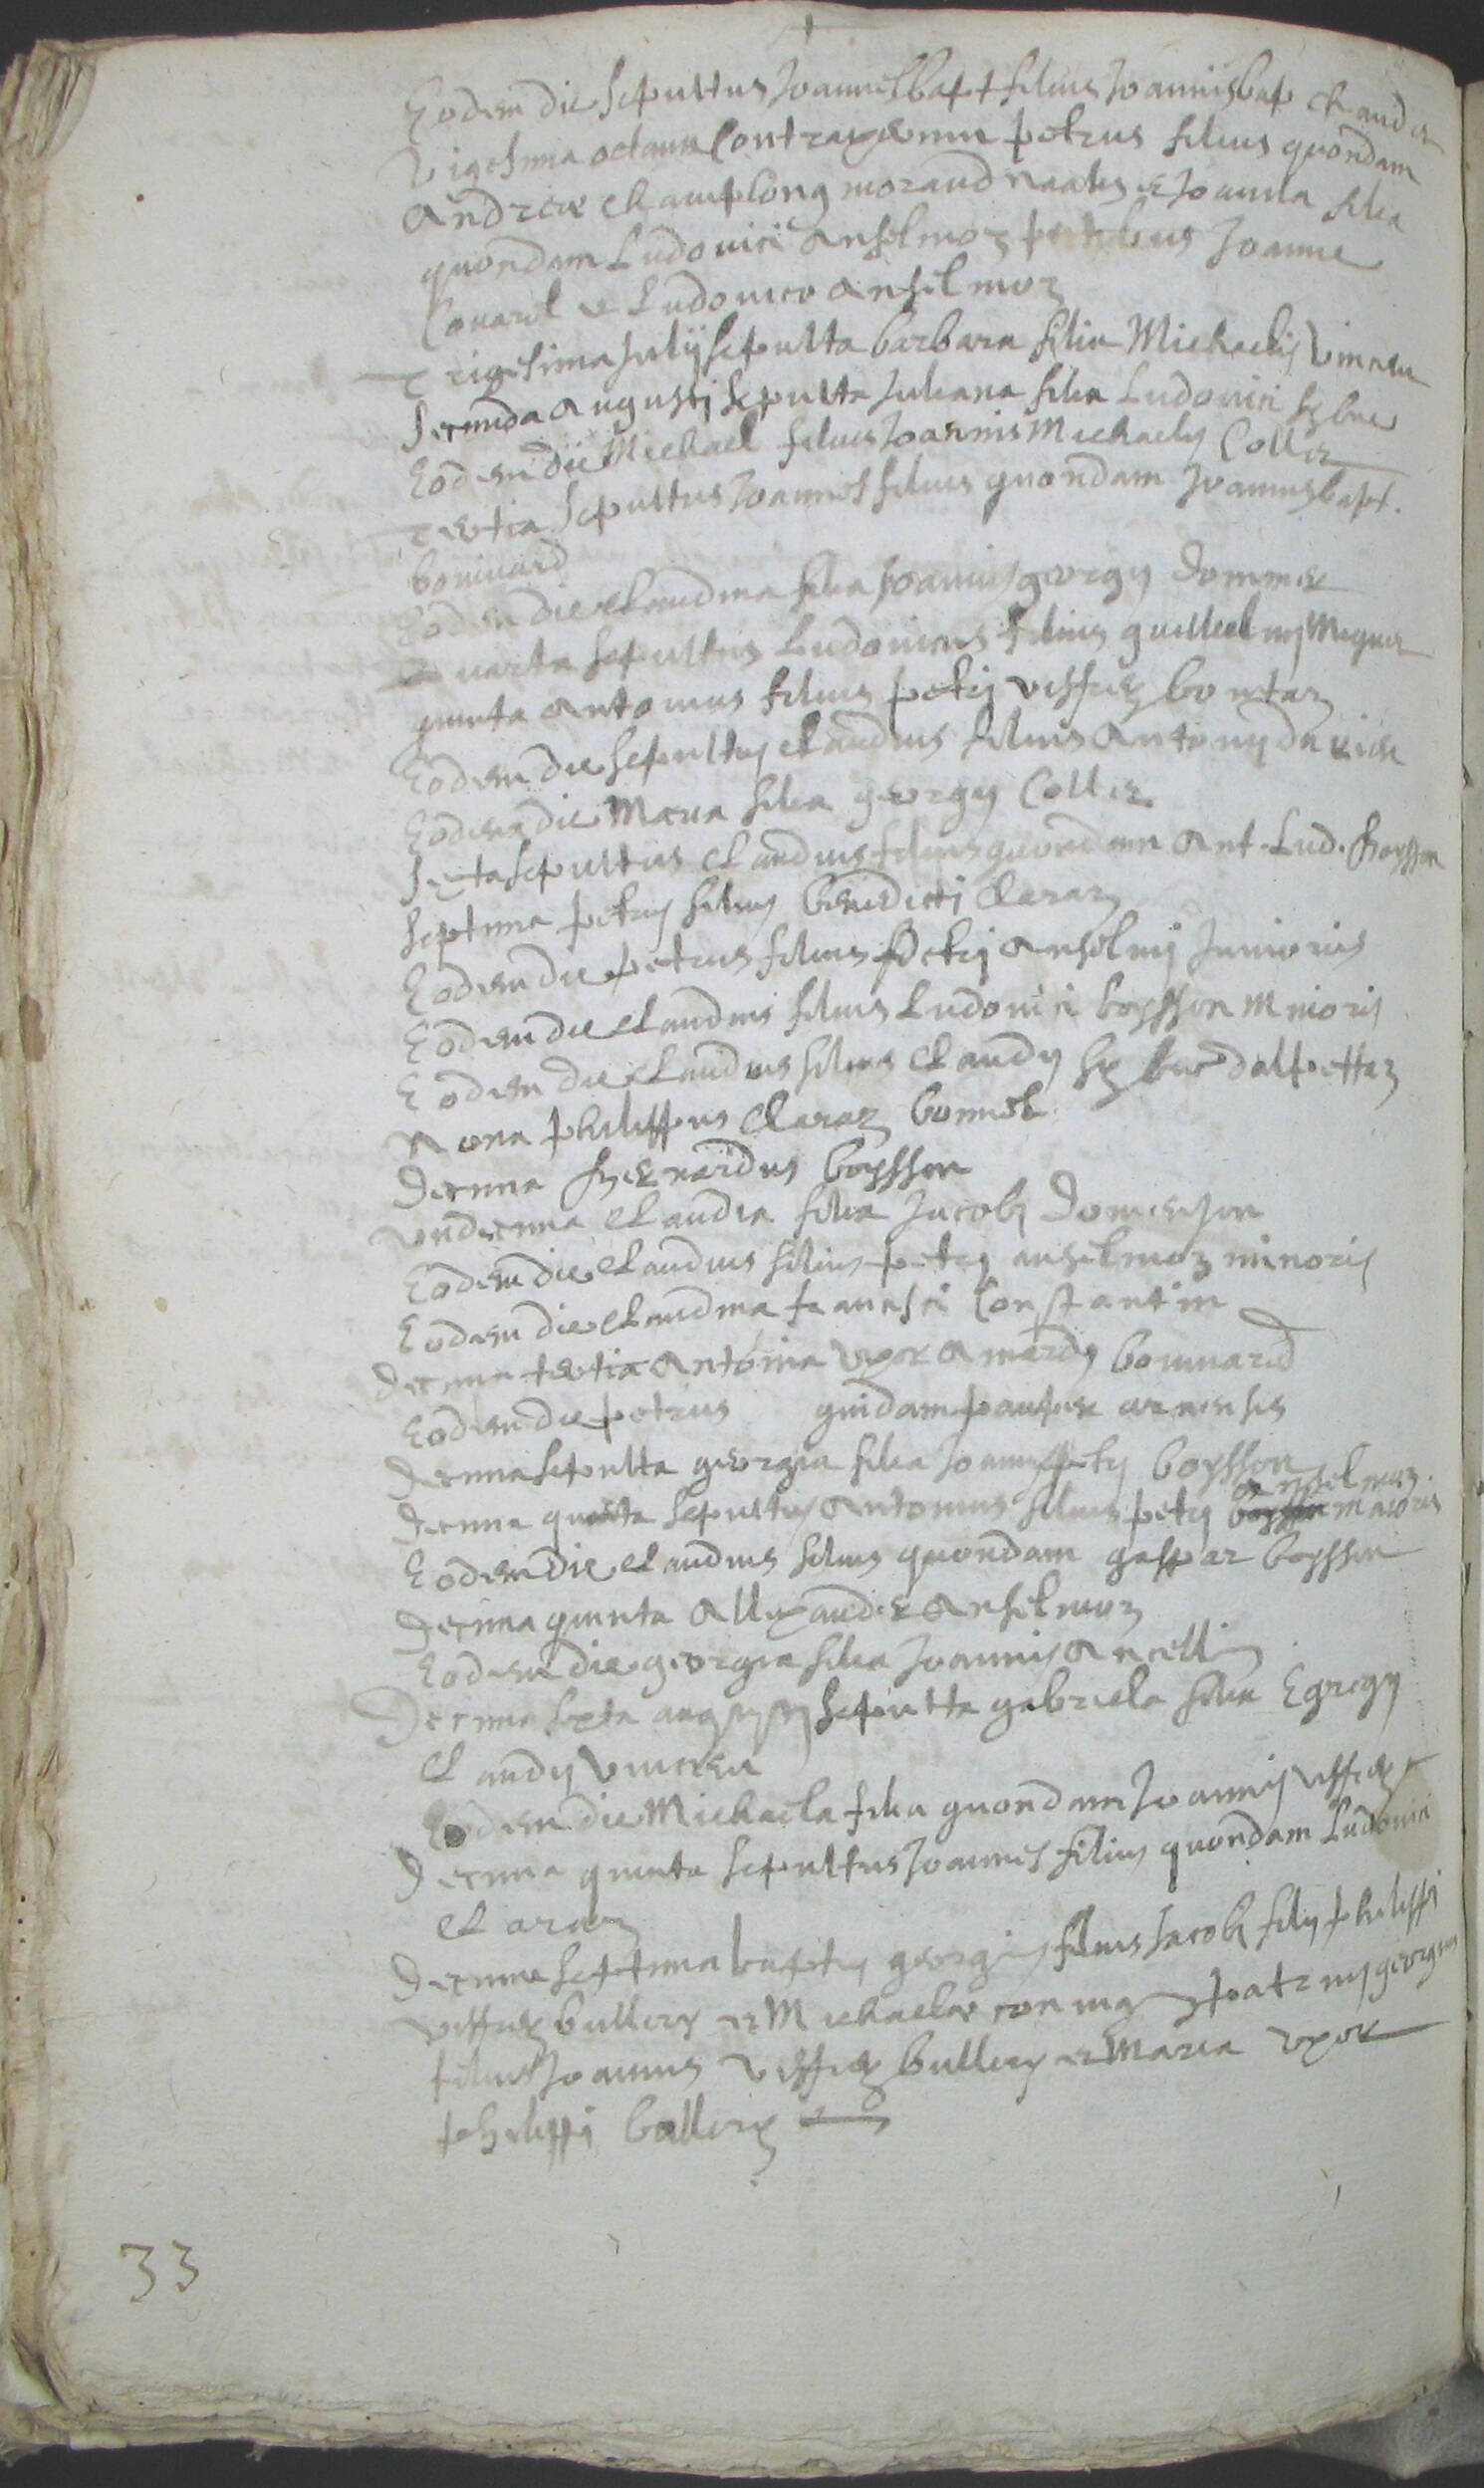 +
Eodem die sepultus Joannesbapt filius Joannisbap
Vigesima octava Contraxerunt petrus filius quondam
Andreae Champlong moraud et Joanna filia
quondam Ludovici Anselmoz Joanne
Covarel et Ludovico Anselmoz
Trigesima Julij sepulta barbara filia Michaelis
Secunda Augusti sepulta Juliana filia Ludovici
Eodem die Michael filius Joannis Michaelis Collet
Tertia sepultus Joannes filius quondam Joannisbapt.
bonivard
Eodem die Claudina filia Joannis georgij
quarta sepultus Ludovicus filius guillelmi
quinta Antonius filius petri viffrey bontaz
Eodem die sepultus Claudius filius Antonij
Eodem die Maria filia georgij Collet
Sexta sepultus Claudius filius quondam Ant. Lud. boysson
Septima petrus filius benedicti Claraz
Eodem die petrus filius petri Anselmi Junioris
Eodem die Claudius filius Ludovici boysson Minoris
Eodem die Claudius filius Claudij
Nona philippus Claraz bonnet
Decima boysson
Undecima Claudia filia Jacobi Domenjon
Eodem die Claudius filius petri anselmoz minoris
Eodem die Claudina francisci Constantin
Decima tertia Antonia uxor Amedej bonivard
Eodem die petrus quidam pauper
Decima sepulta georgia filia Joannis petri boysson
anselmoz.
Decima quarta sepultus Antonius filius petri maioris
Eodem die Claudius filius quondam gaspar boysson
Decima quinta Allexander Anselmoz
Eodem die georgia filia Joannis Ancelli
Decima sexta augusti sepulta gabriela filia Egregij
Claudij
Eodem die Michaela filia quondam Joannis viffrey
Decima quinta sepultus Joannes filius quondam Ludovici
Claraz
Decima septima baptus georgius filius Jacobi filij philippi
viffrey bullery et Michaelae coniug patrinj georgius
filius Joannis viffrey bullery et Maria uxor
philippi bullery
33